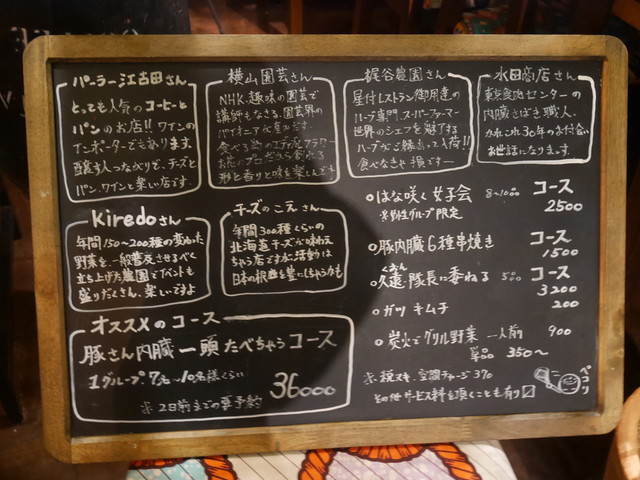 パーラー江古田さん
とっても人気のコーヒーと
パンのお店!! ワインの
インポーターでもあります
醸す人つながりで、チーズと
パン、ワインを楽しい店です。
横山園芸さん
NHK・趣味の園芸で
講師もなさる、園芸界の
パイオニアな方です。
食べる
お花のプロだから創れる
形と香りと味を楽しんで
梶谷農園さん
星付レストラン御用達の
ハーブ専門スーパーファーマー
世界のシェフを魅了する
ハーブがご縁あって入荷!!
食べなきゃ損ですー
水田商店さん
東京食肉センターの
内臓さばき職人。
かれこれ30年のお付合い
お世話になります。
Kiredoさん
年間150〜200種の変わった
野菜を、一般普及させるべく
立ち上げた農園でイベントも
盛りだくさん、楽しいですよ
チーズのこえさん
年間300種くらいの
北海道チーズが味わえ
ちゃう店です
日本の
オススメのコース
豚さん内臓一頭たべちゃうコース
1グループ7名〜10名様くらい
36000
※2日前までの要予約
○はな咲く女子会 8〜10品 コース
※女性グループ限定 2500
○豚内臓6種串焼き コース
1500
くおん
○久遠隊長に委ねる 5品 コース
3200
○ガツキムチ 200
○炭火でグリル野菜 一人前 900
単品 350〜
※税ヌキ、空間チャージ370
その他サービス料を頂くことも有り
ペコリ